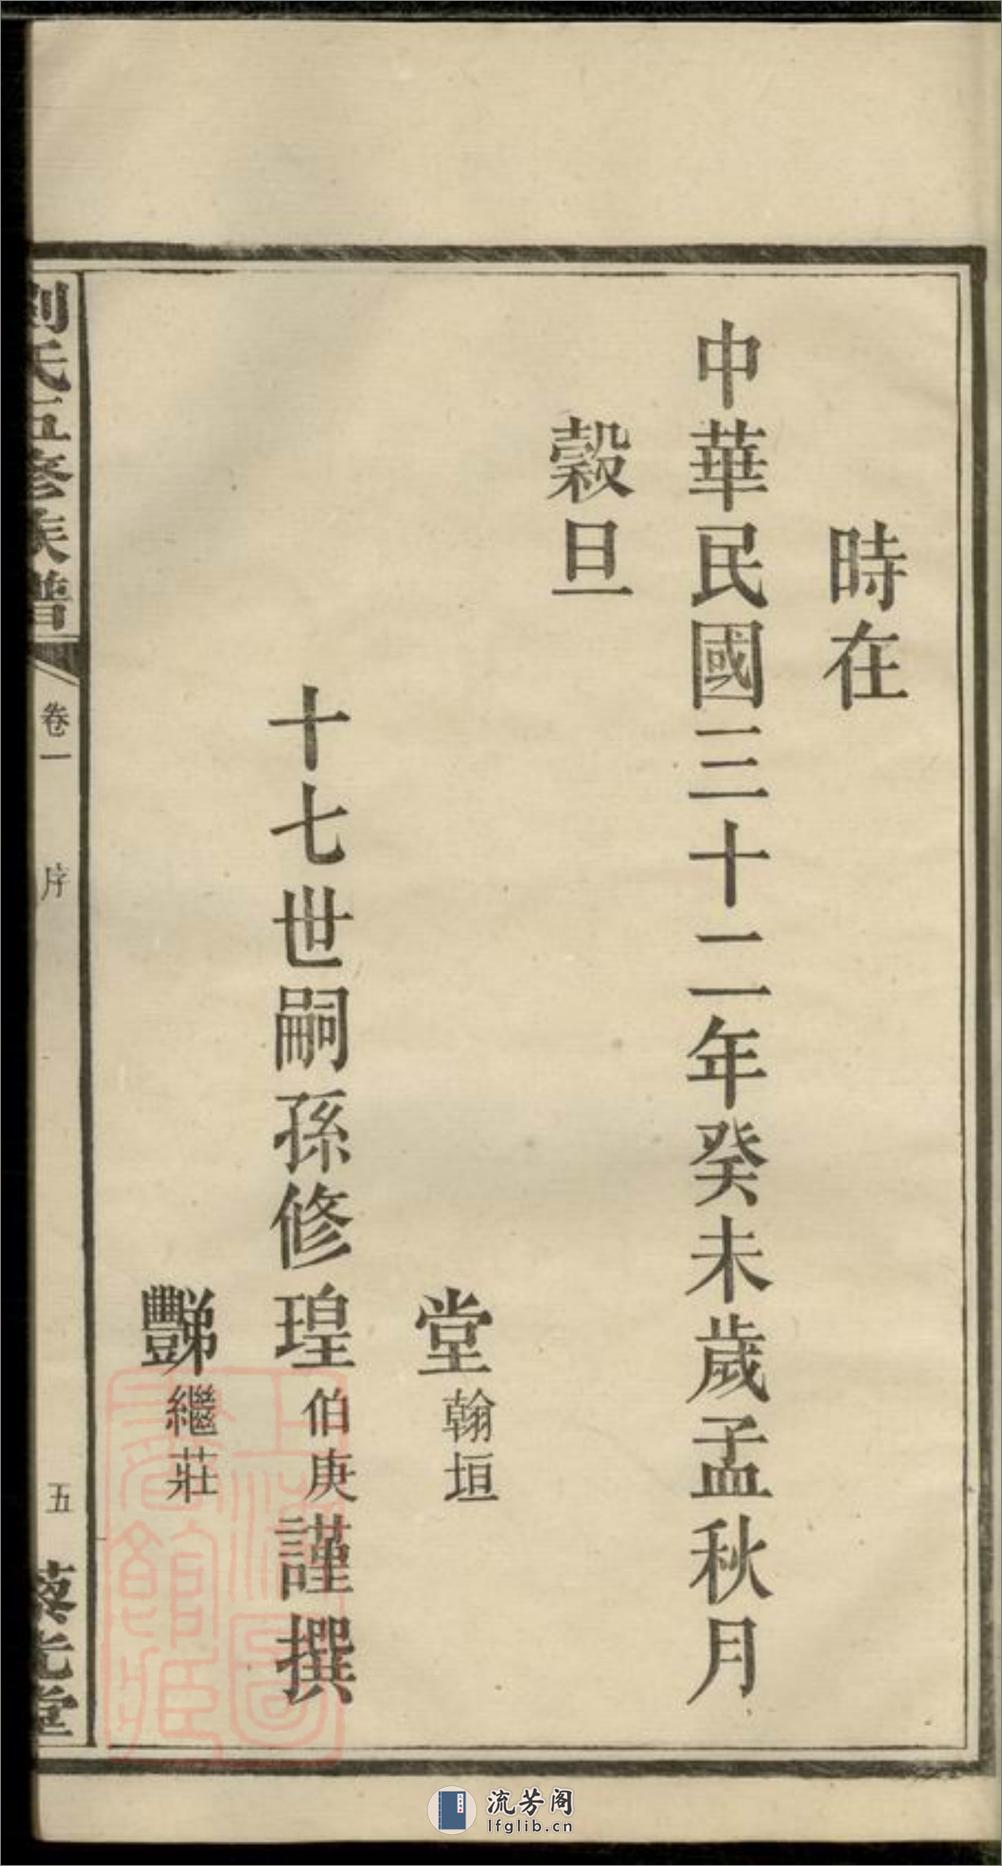 時在
中華民國三十二年癸未歲孟秋月
穀旦
堂翰垣
十七世嗣孫修瑝伯庚謹撰
繼莊
劉氏五修族譜
卷一
序
五
藜光堂
流芳阁
lfglib.cn